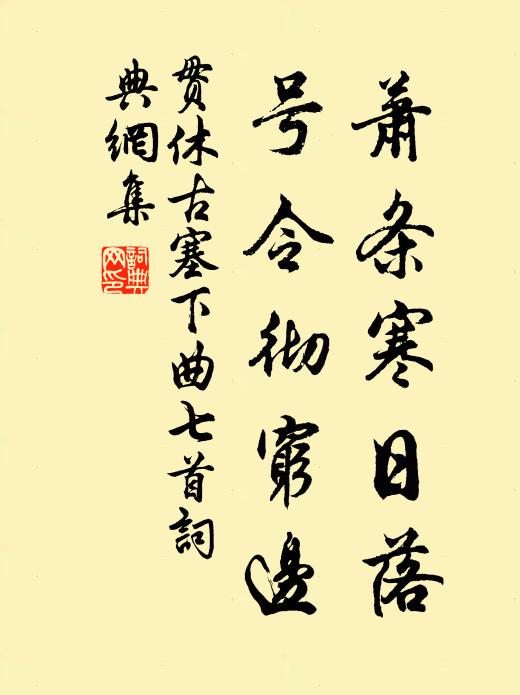 萧条寒日落
号令彻穷边
贯休古塞下曲七首詞
典網集
詞典网印